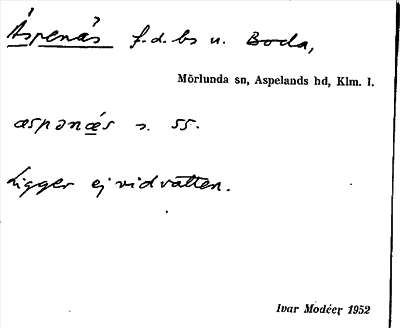 Äspenäs f.d. bs u. Boda,
Mörlunda sn, Aspelands hd, Klm. l.
æspənæ̲s s. ss.
Ligger ej vid vatten.
Ivar Modéer 1952